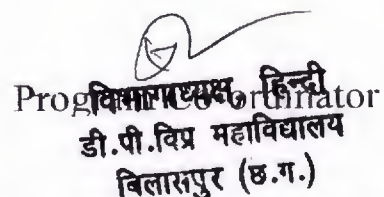 Program Co-ordinator
विभागाध्यक्ष, हिन्दी
डी.पी.विप्र महाविद्यालय
बिलासपुर (छ.ग.)